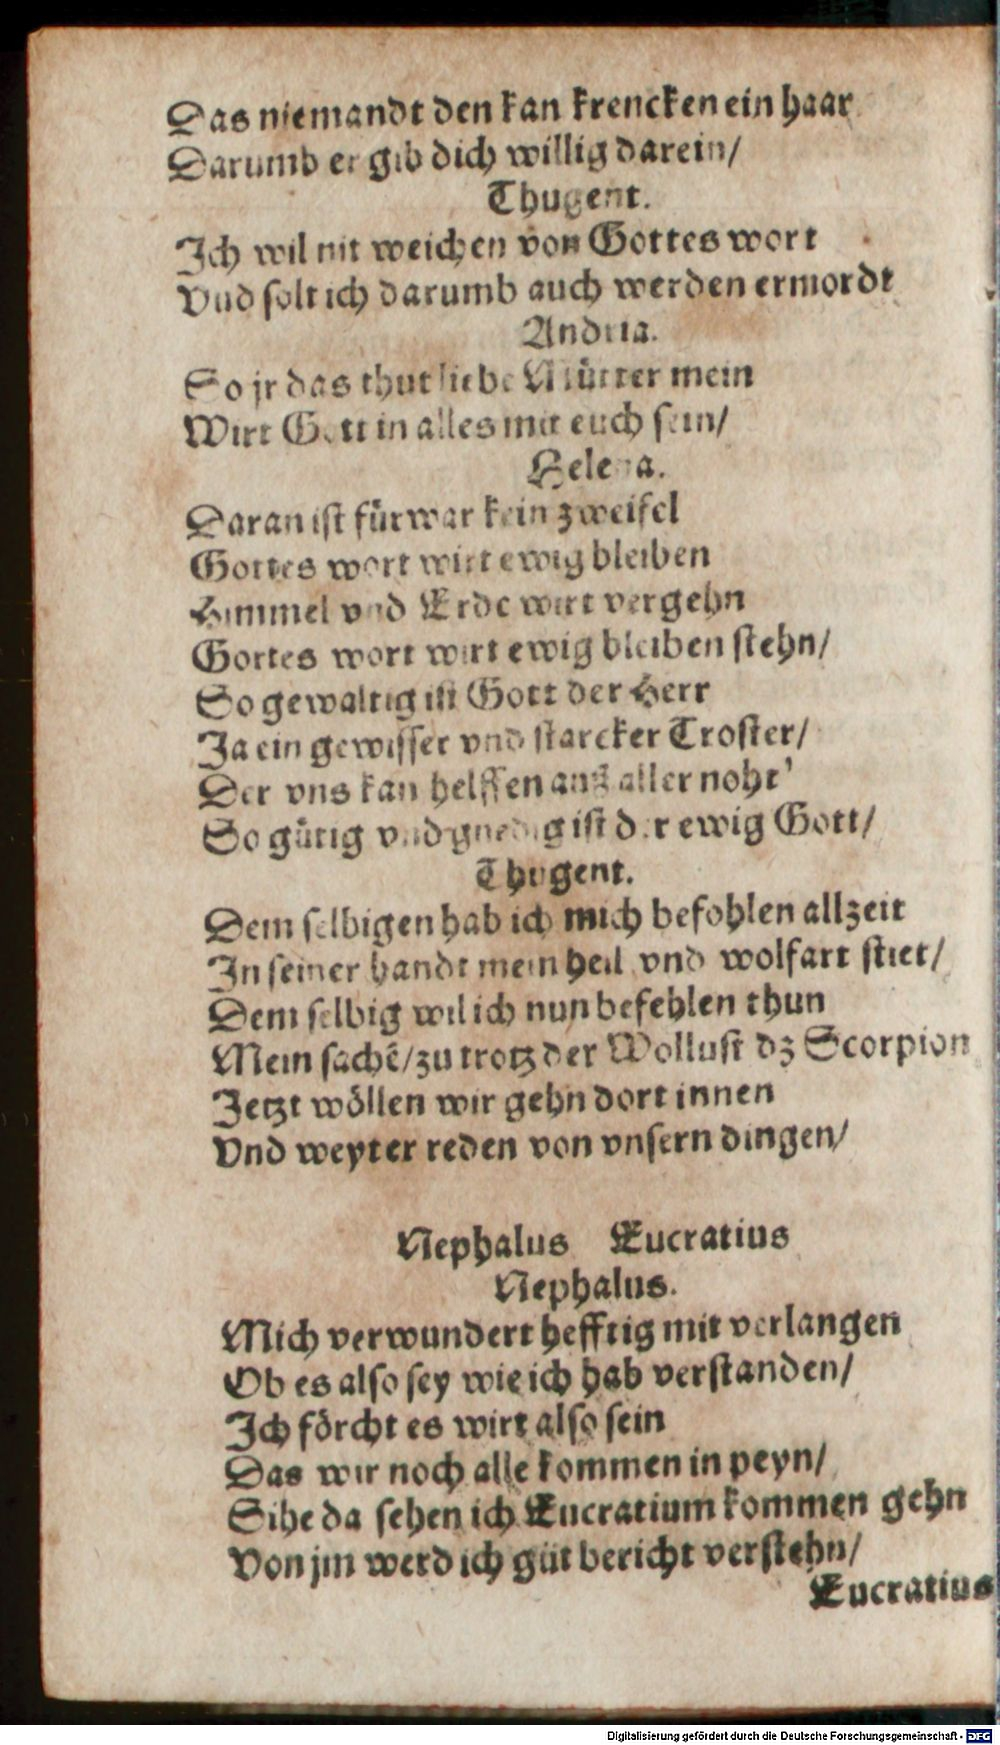 Das niemandt den kan krencken ein haar
Darumb ergib dich willig darein/
Thugent.
Ich wil nit weichen von Gottes wort
Vnd solt ich darumb auch werden ermordt
Andria.
So jr das thut liebe Mütter mein
Wirt Gott in alles mit euch sein/
Helena.
Daran ist fürwar kein zweifel
Gottes wort wirt ewig bleiben
Himmel vnd Erde wirt vergehn
Gottes wort wirt ewig bleiben stehn/
So gewaltig ist Gott der Herr
Ja ein gewisser vnd starcker Troster/
Der vns kan helffen auß aller noht
So gütig vnd gnedig ist der ewig Gott/
Thugent.
Dem selbigen hab ich mich befohlen allzeit
In seiner handt mein heil vnd wolfart stiet/
Dem selbig wil ich nun befehlen thun
Mein sachē/zu trotz der Wollust dz Scorpion
Jetzt wöllen wir gehn dort innen
Vnd weyter reden von vnsern dingen/
Nephalus Eucratius
Nephalus.
Mich verwundert hefftig mit verlangen
Ob es also sey wie ich hab verstanden/
Ich förcht es wirt also sein
Das wir noch alle kommen in peyn/
Sihe da sehen ich Eucratium kommen gehn
Von jm werd ich güt bericht verstehn/
Eucratius
Digitalisierung gefördert durch die Deutsche Forschungsgemeinschaft - DFG